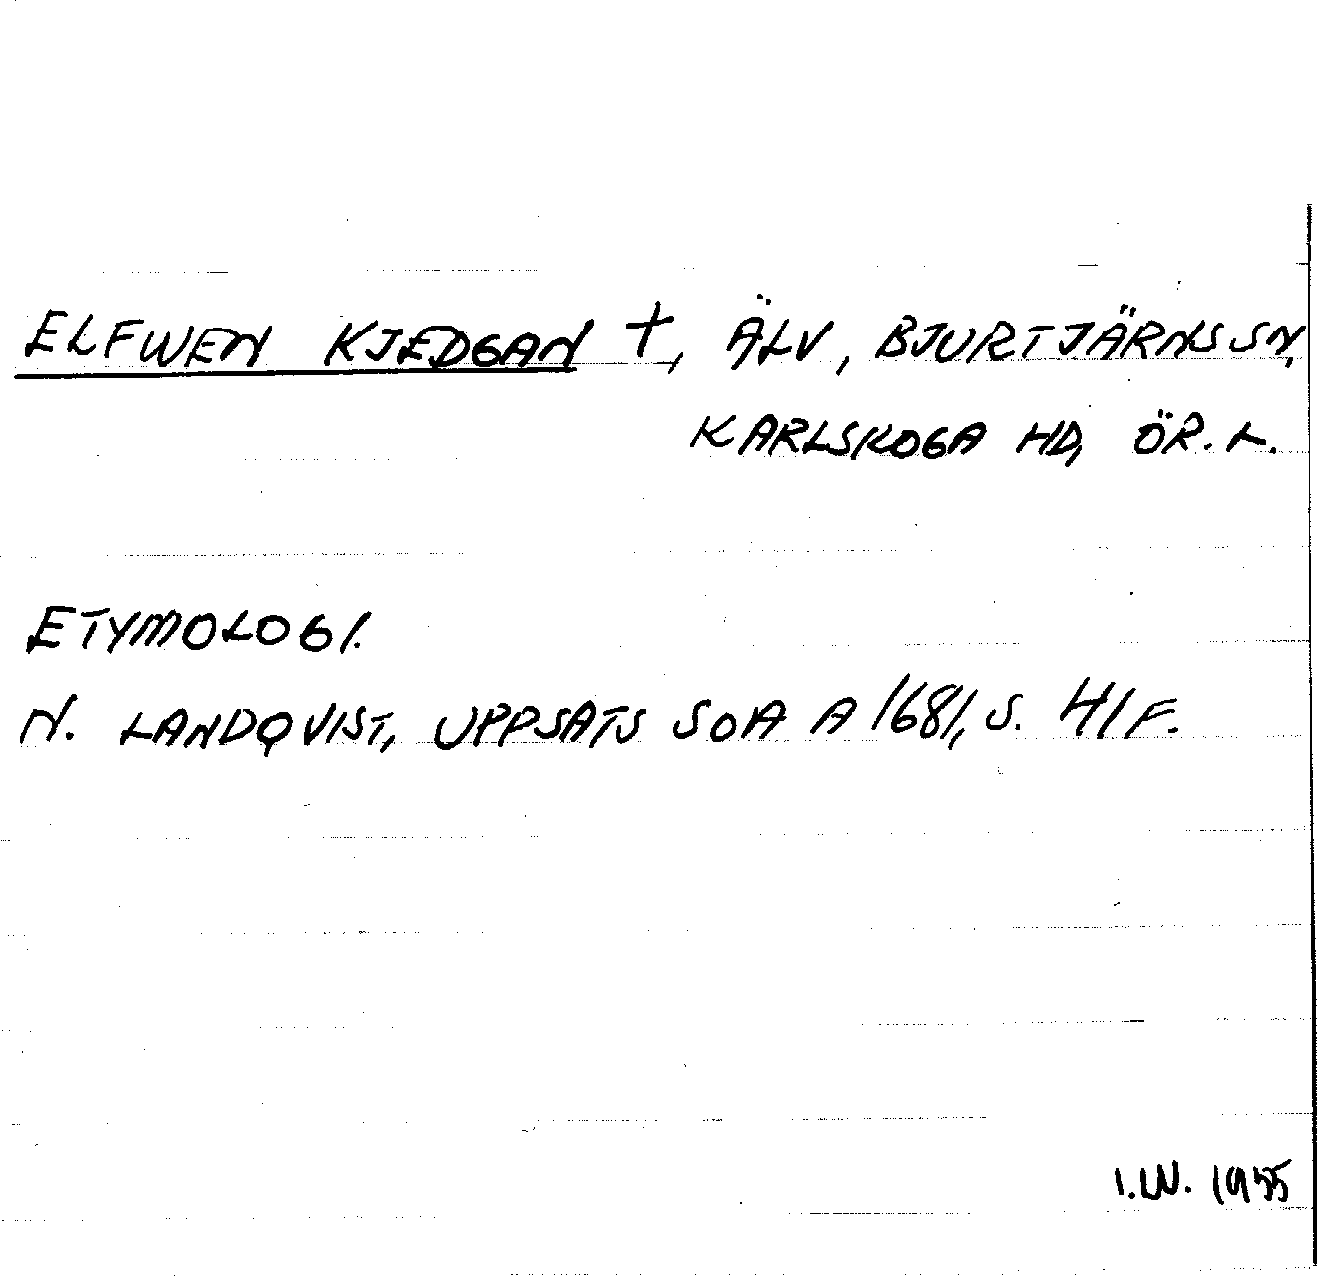 ELFWEN KJEDGAN †, ÄLV, BJURTJÄRNS SN,
KARLSKOGA HD, ÖR. L.
ETYMOLOGI.
N. LANDQVIST, UPPSATS SOA A 1681, S. 41 F.
I.W. 1955